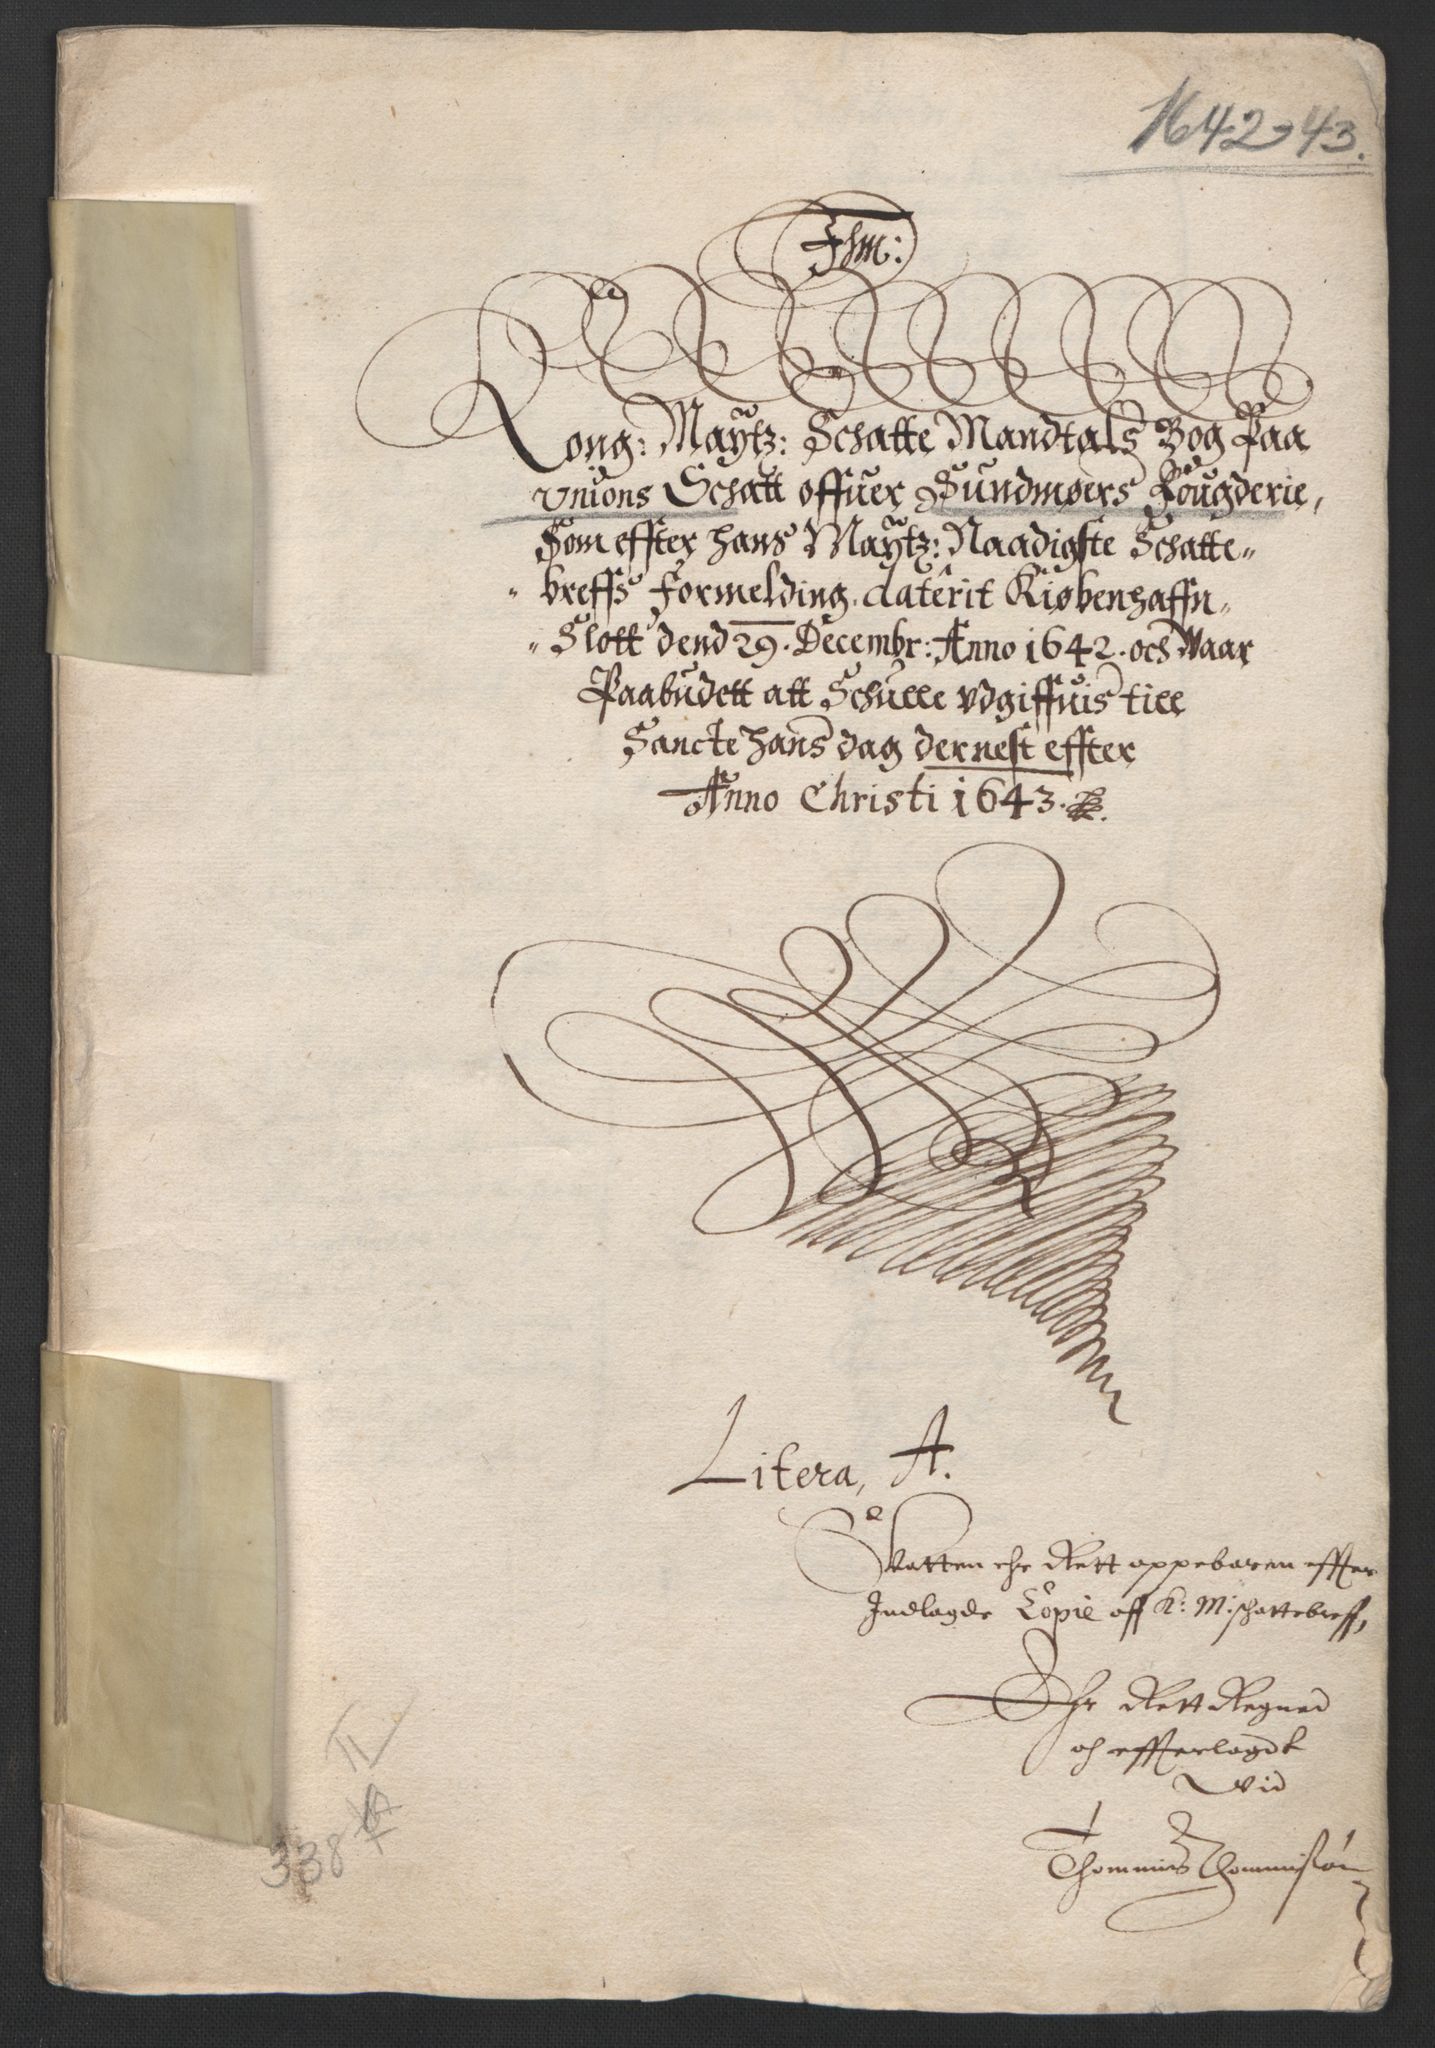 1642-43.
Ihm:
Kong: Maÿtz: Schatte Mandtals Bog Paa
Unions Schatt offuer Sundmøers Fougderie,
Som effter hans Maÿtz: Naadigste Schatte-
breffs Formelding. daterit Kiøbenhaffn-
Slott dend 29. Decembr: Anno 1642. och Waar
Paabudett att Schulle udgiffuis till
Sancte hans dag dernest effter
Anno Christi 1643.
Litera, A.
Skatten ehr Rett oppebaren effter
Indlagde Copie aff K: M: schattebreff,
Ehr Rett Regned
och effterlagdt
Vid
Thommis Thommissøn
II
338